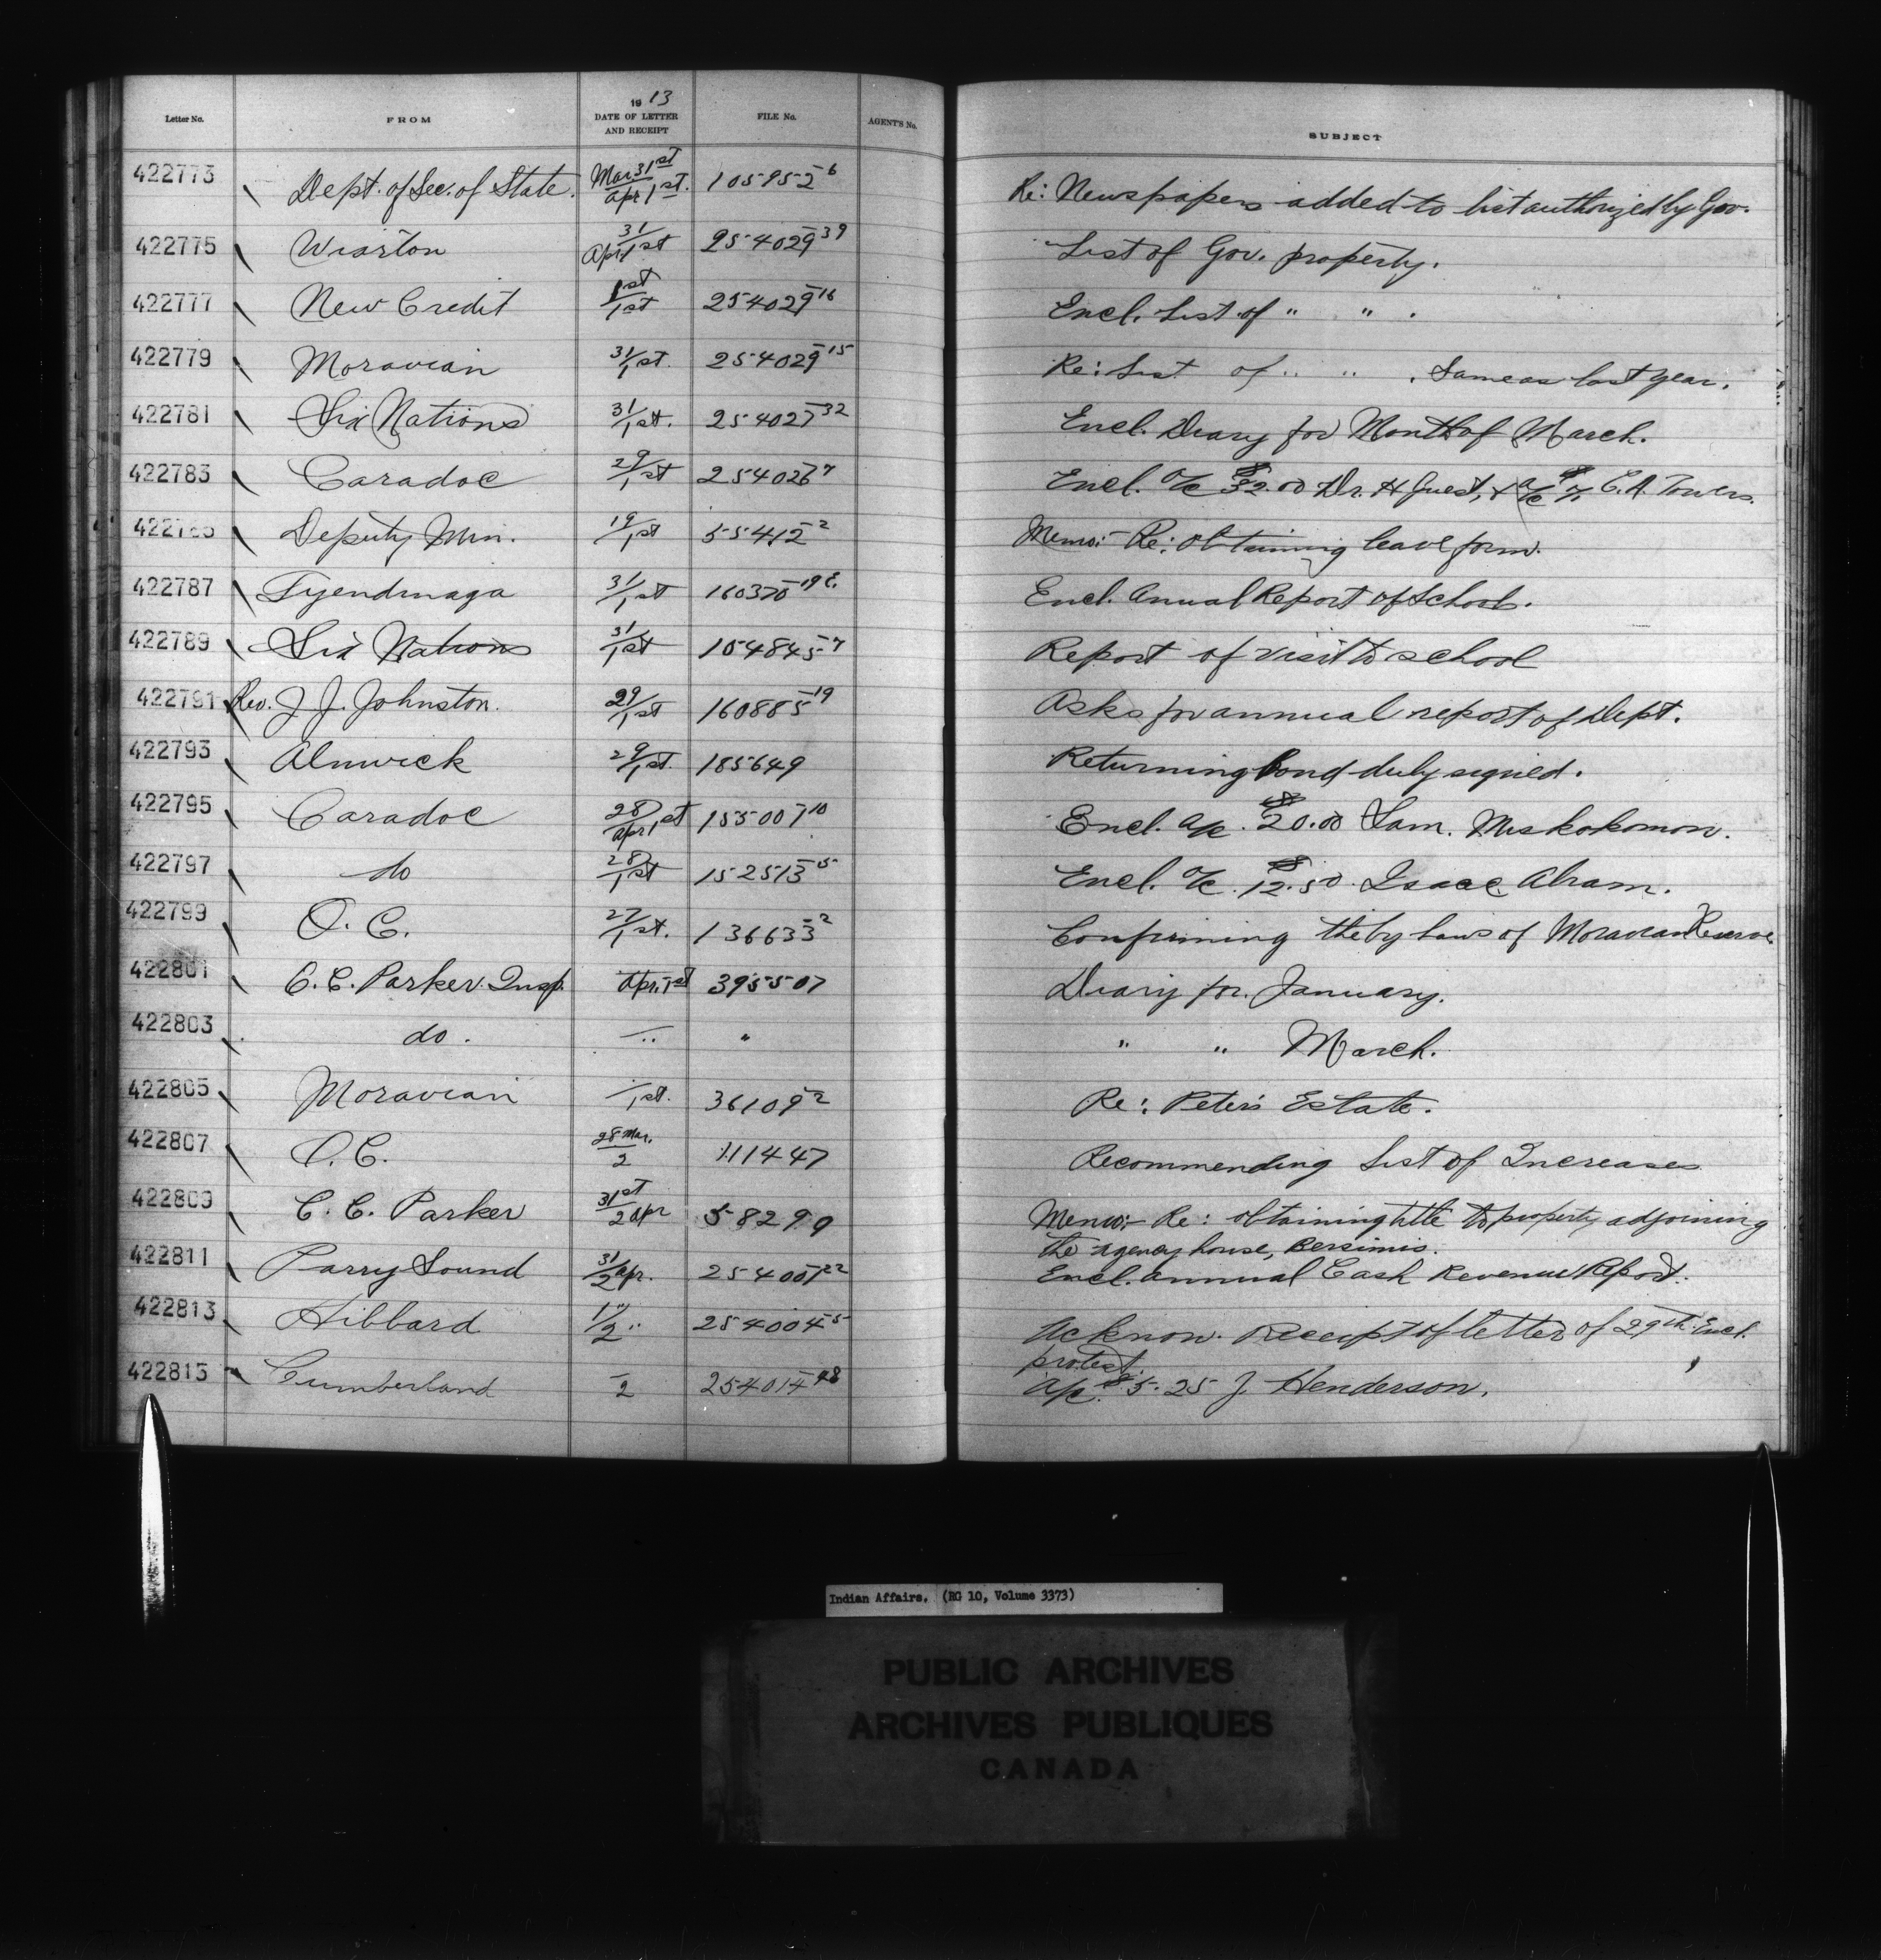 Letter No. FROM 1913 DATE OF LETTER AND RECEIPT FILE No. AGENT'S No. SUBJECT
422773 Dept. of Sec. of State. Mar 31st/Apr 1st. 105952-6 Re: Newspapers added to list authorized by Gov.
422775 Wiarton 31/Apr 1st 254029-39 List of Gov. property.
422777 New Credit 1st/1st 254029-16 Encl. List of " " .
422779 Moravian 31/1st. 254029-15 Re: List of " " . Same as last year.
422781 Six Nations 31/1st. 254027-32 Encl. Diary for Month of March.
422783 Caradoc 29/1st 254026-7 Encl. a/c $32.00 Dr. H Guest, & a/c $7. C. A. Towers.
Deputy Min. 19/1st 55412-2 Memo:- Re: obtaining leave form.
422787 Tyendinaga 31/1st 160370-19 E. Encl. Anual Report of School.
422789 Six Nations 31/1st 104845-7 Report of visit to school
422791 Rev. J. J. Johnston. 29/1st 160885-19 Asks for annual report of Dept.
422793 Alnwick 29/1st. 185649 Returning bond duly signed.
422795 Caradoc 28/Apr 1st 155007-10 Encl. a/c. $20.00 Sam. Miskokomon.
422797 do 28/1st 152513-5 Encl. a/c. $12.50. Isaac Abram.
422799 O. C. 27/1st. 136633-2 Confirming the by laws of Moravian Reserve
422801 C. C. Parker Insp. Apr. 1st 395507 Diary for January.
422803 do. — " " " " March.
422805 Moravian —/1st. 36109-2 Re: Peter's Estate.
422807 O. C. 28 Mar./2 111447 Recommending List of Increases
422809 C. C. Parker 31st/2 Apr 58299 Memo:- Re: obtaining title to property adjoining
the agency house, Bersimis.
422811 Parry Sound 31/2 Apr. 254007-22 Encl. annual Cash Revenue Report.
422813 Hibbard 1"/2" 254004-5 Acknow. Receipt of letter of 29th. Encl.
protest.
422815 Cumberland —/2 254014-28 a/c. $5.25 J Henderson.
Indian Affairs. (RG 10, Volume 3373)
PUBLIC ARCHIVES
ARCHIVES PUBLIQUES
CANADA